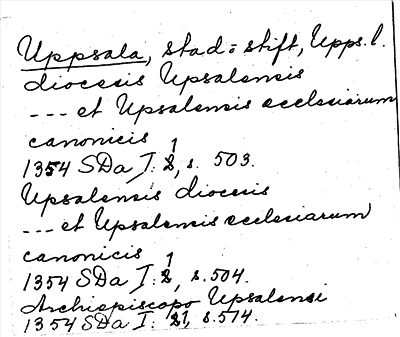 Uppsala, stad = stift, Upps. l.
diocesis Upsalensis
--- et Upsalensis ecclesiarum
canonicis
1354 SDa I: 1, s. 503.
Upsalensis diocesis
--- et Upsalensis ecclesiarum
canonicis
1354 SDa I: 1, s. 504.
Archiepiscopo Upsalensi
1354 SDa I: 1, s. 514.